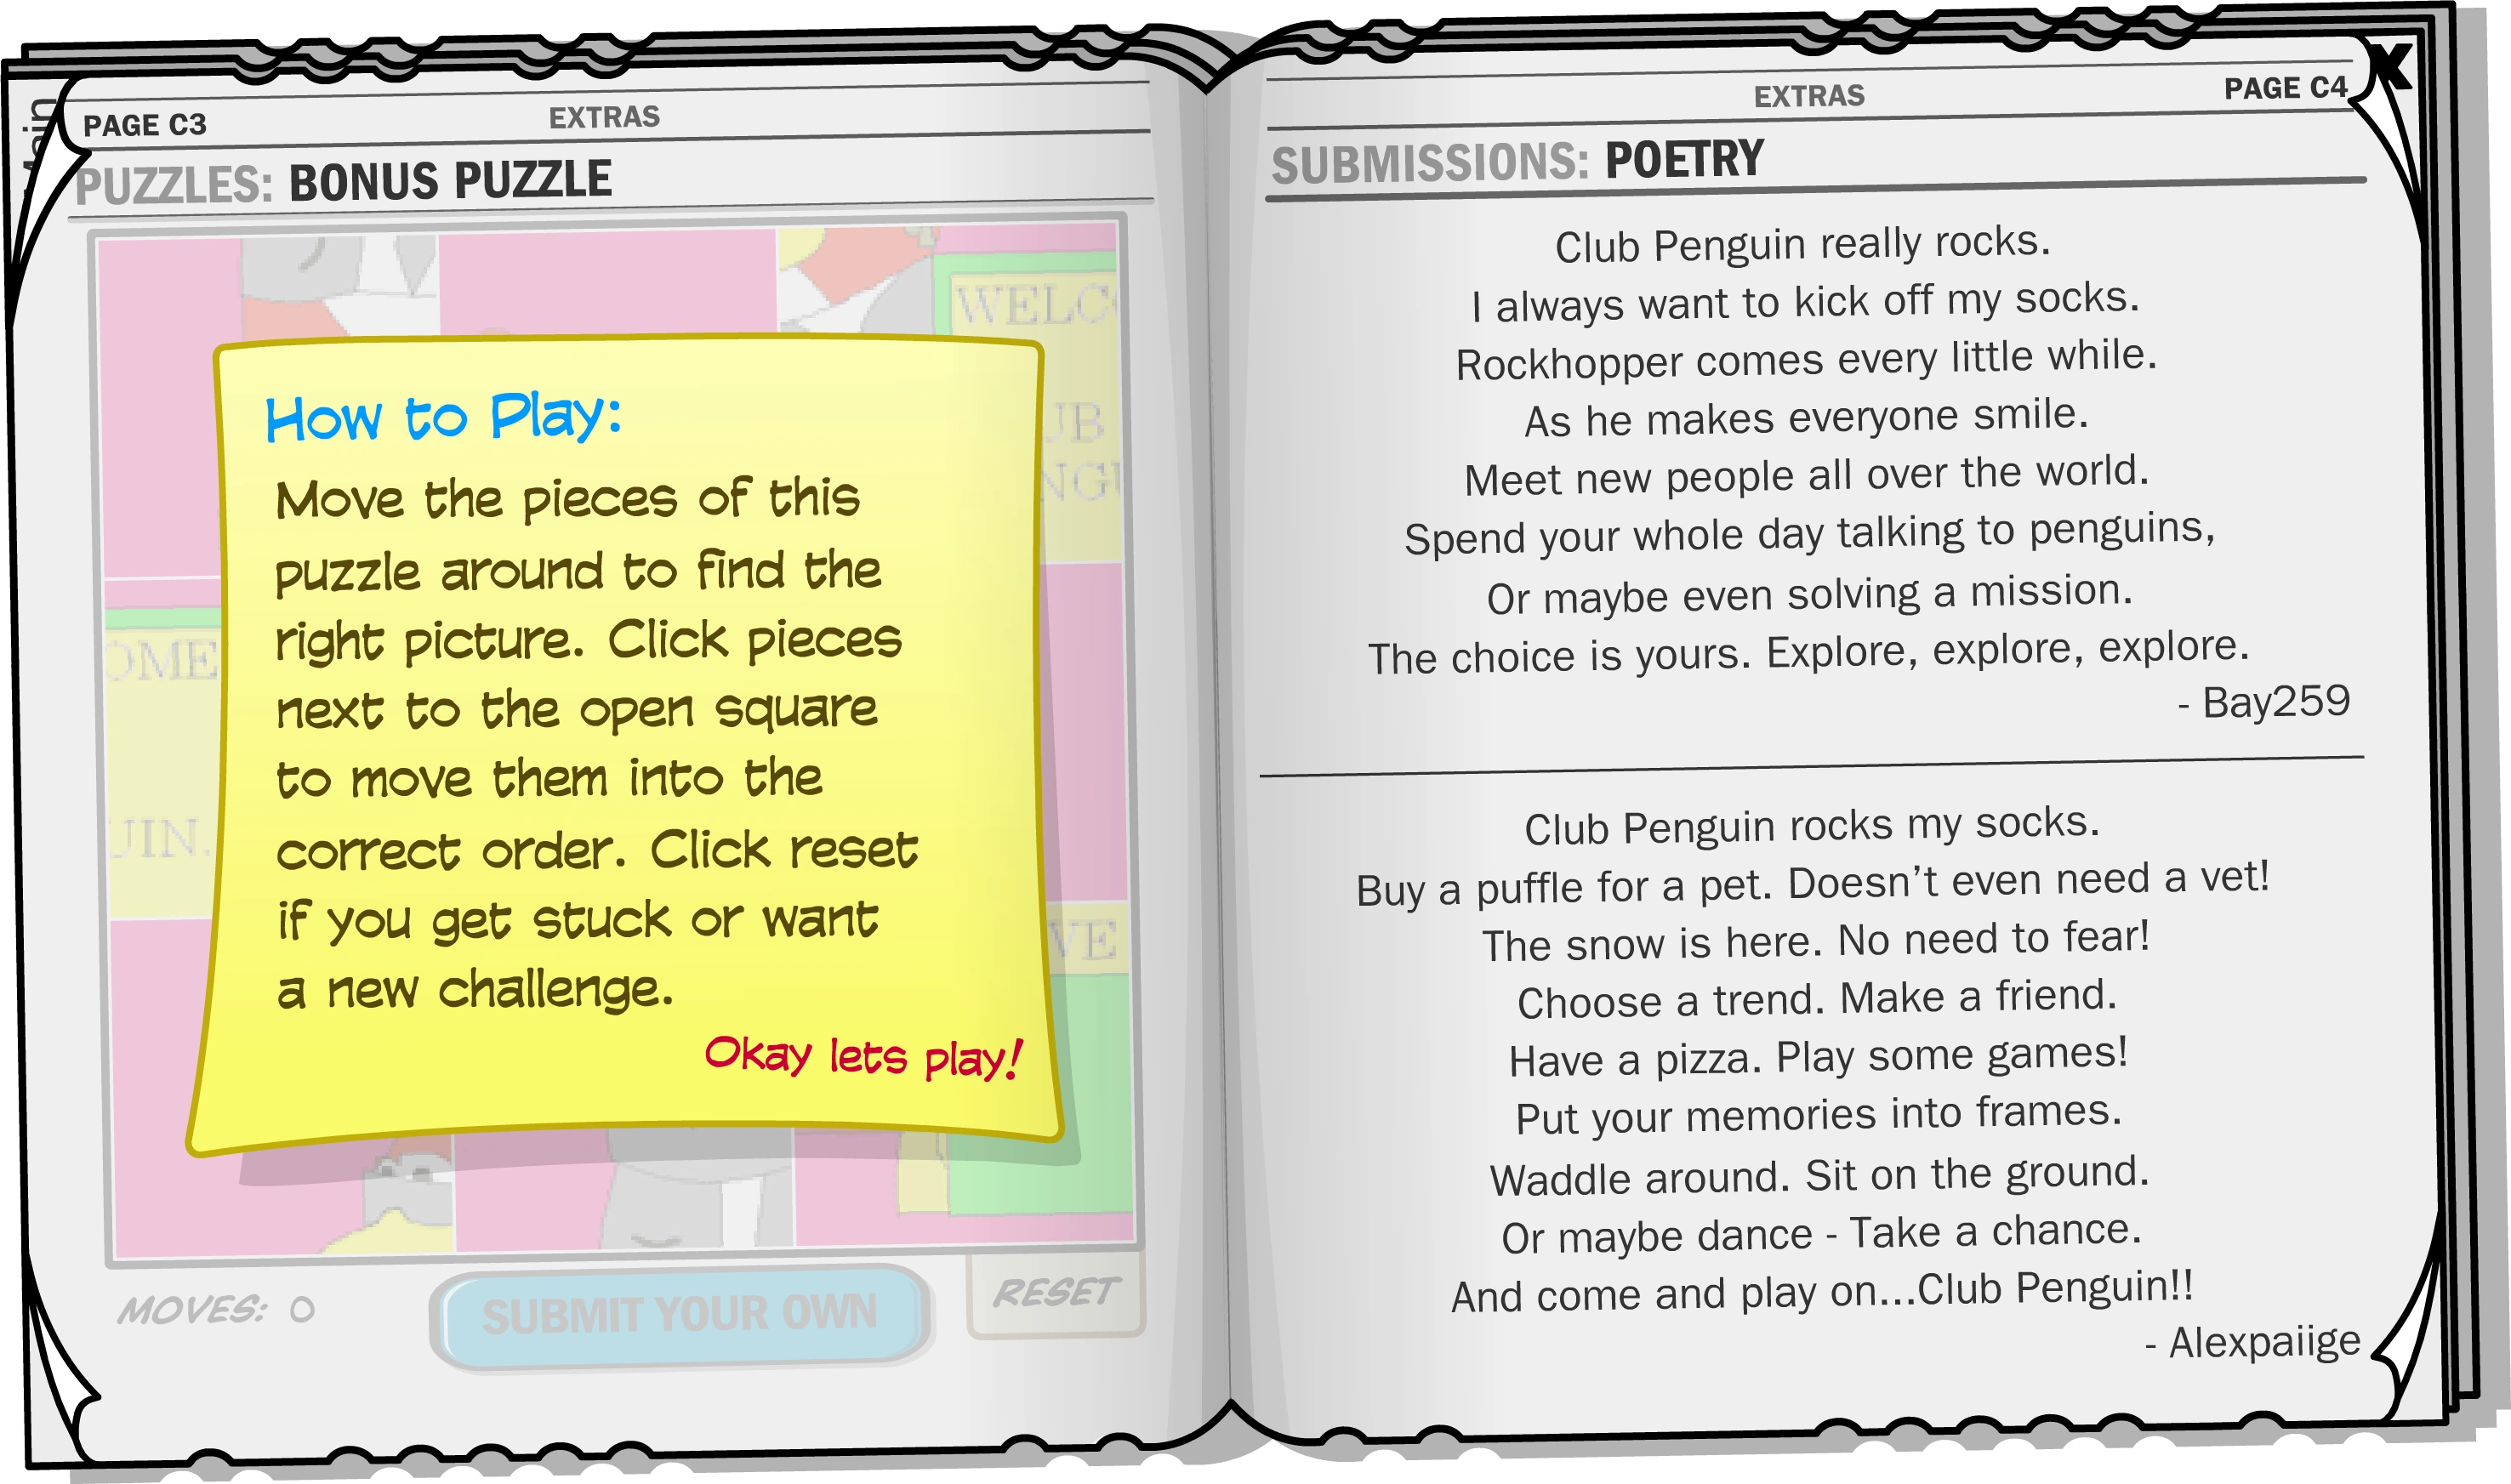 Main
PAGE C3
EXTRAS
PUZZLES: BONUS PUZZLE
WELCO
UB
NGU
OME
UIN.
VE
How to Play:
Move the pieces of this
puzzle around to find the
right picture. Click pieces
next to the open square
to move them into the
correct order. Click reset
if you get stuck or want
a new challenge.
Okay lets play!
MOVES: 0
SUBMIT YOUR OWN
RESET
EXTRAS
PAGE C4
X
SUBMISSIONS: POETRY
Club Penguin really rocks.
I always want to kick off my socks.
Rockhopper comes every little while.
As he makes everyone smile.
Meet new people all over the world.
Spend your whole day talking to penguins,
Or maybe even solving a mission.
The choice is yours. Explore, explore, explore.
- Bay259
Club Penguin rocks my socks.
Buy a puffle for a pet. Doesn't even need a vet!
The snow is here. No need to fear!
Choose a trend. Make a friend.
Have a pizza. Play some games!
Put your memories into frames.
Waddle around. Sit on the ground.
Or maybe dance - Take a chance.
And come and play on...Club Penguin!!
- Alexpaiige